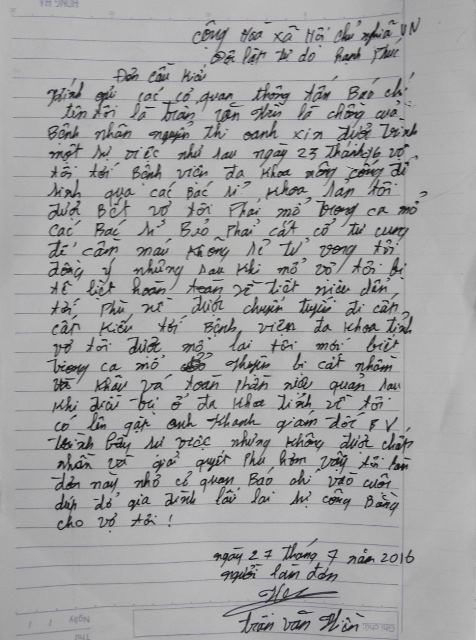 cộng Hoà xã Hội chủ nghĩa VN
Độc lập tự do hạnh Phúc
Đơn cầu Kiếu
Kính gửi các cơ quan thông tấn Báo chí
tên tôi là trần văn Hiền là chồng của
Bệnh nhân nguyễn thị oanh xin được trình
một sự việc như sau ngày 23 tháng 6 vợ
tôi tới Bệnh viện đa Khoa nông cống để
sinh qua các Bác sĩ Khoa sản tôi
được Biết vợ tôi Phải mổ trong ca mổ
các Bác sĩ Bảo Phải cắt cổ tử cung
để cầm máu Không sẽ tử vong tôi
đồng ý nhưng sau khi mổ vợ tôi bị
tê liệt hoàn toàn về tiết niệu dẫn
tới Phù nề được chuyển tuyến đi cấp
cấp Kiếu tới Bệnh viện đa Khoa tỉnh
vợ tôi được mổ lại tôi mới biết
trong ca mổ thuyên bị cắt nhầm
và Khâu vá toàn Phần niệu quản sau
Khi điều trị ở đa Khoa tỉnh về tôi
có lên gặp anh Khanh giám đốc BV
trình bầy sự việc nhưng Không được chấp
nhận và giải quyết Phù hợp vậy tôi làm
đơn này nhờ cơ quan Báo chí vào cuộc
giúp đỡ gia đình lấy lại sự công Bằng
cho vợ tôi !
ngày 27 tháng 7 năm 2016
người làm đơn
trần văn Hiền
Ngày